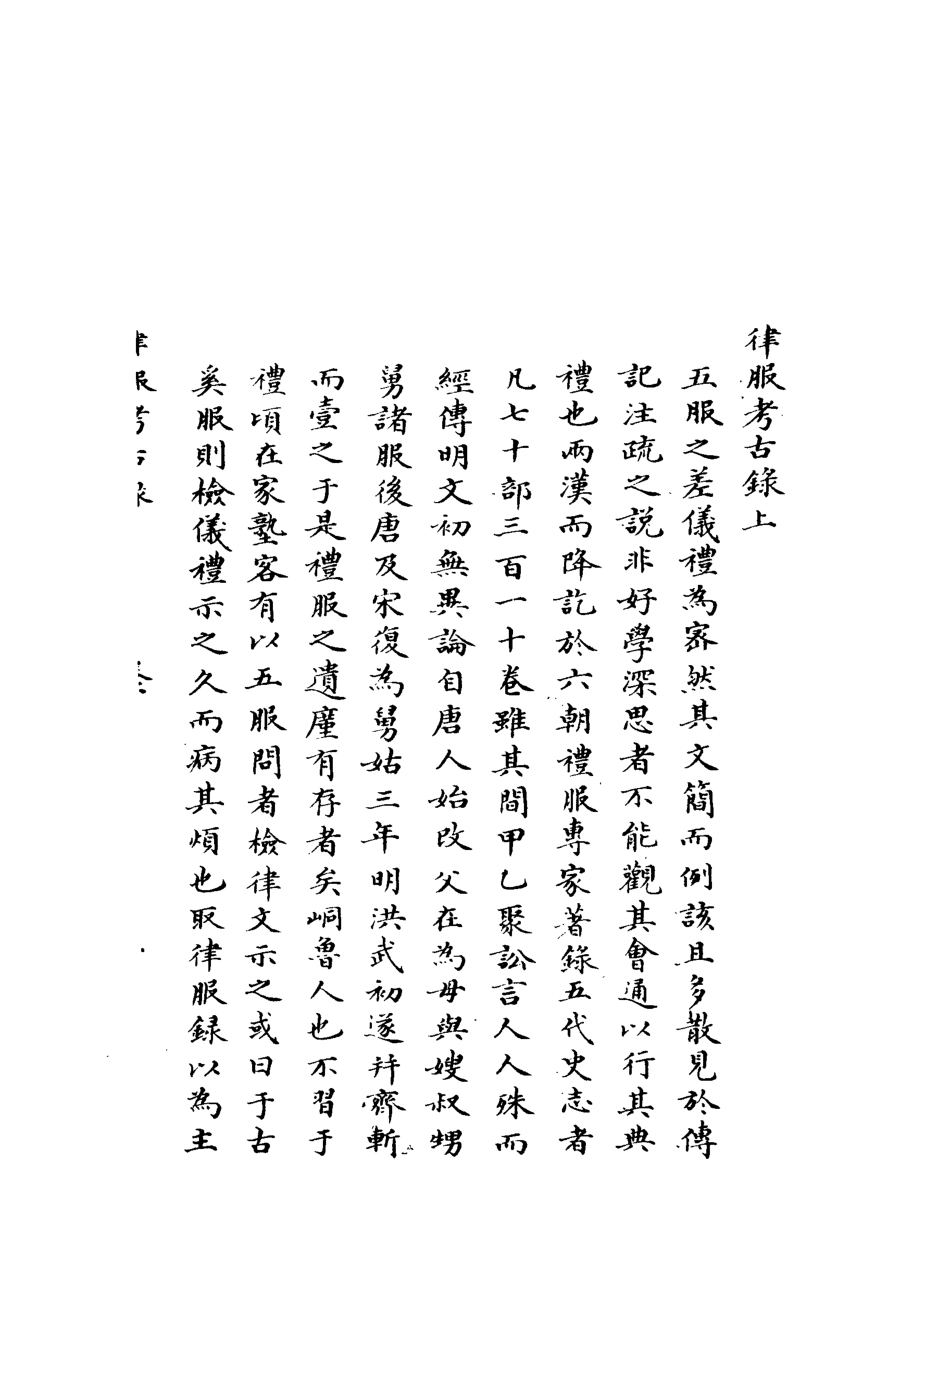 律服考古錄上
五服之差儀禮為密然其文簡而例該且多散見於傳
記注疏之說非好學深思者不能觀其會通以行其典
禮也兩漢而降訖於六朝禮服專家著錄五代史志者
凡七十部三百一十卷雖其間甲乙聚訟言人人殊而
經傳明文初無異論自唐人始改父在為母與嫂叔甥
舅諸服後唐及宋復為舅姑三年明洪武初遂并齊斬
而壹之于是禮服之遺廑有存者矣峒魯人也不習于
禮頃在家塾客有以五服問者檢律文示之或曰于古
奚服則檢儀禮示之久而病其煩也取律服録以為主
律服考古錄